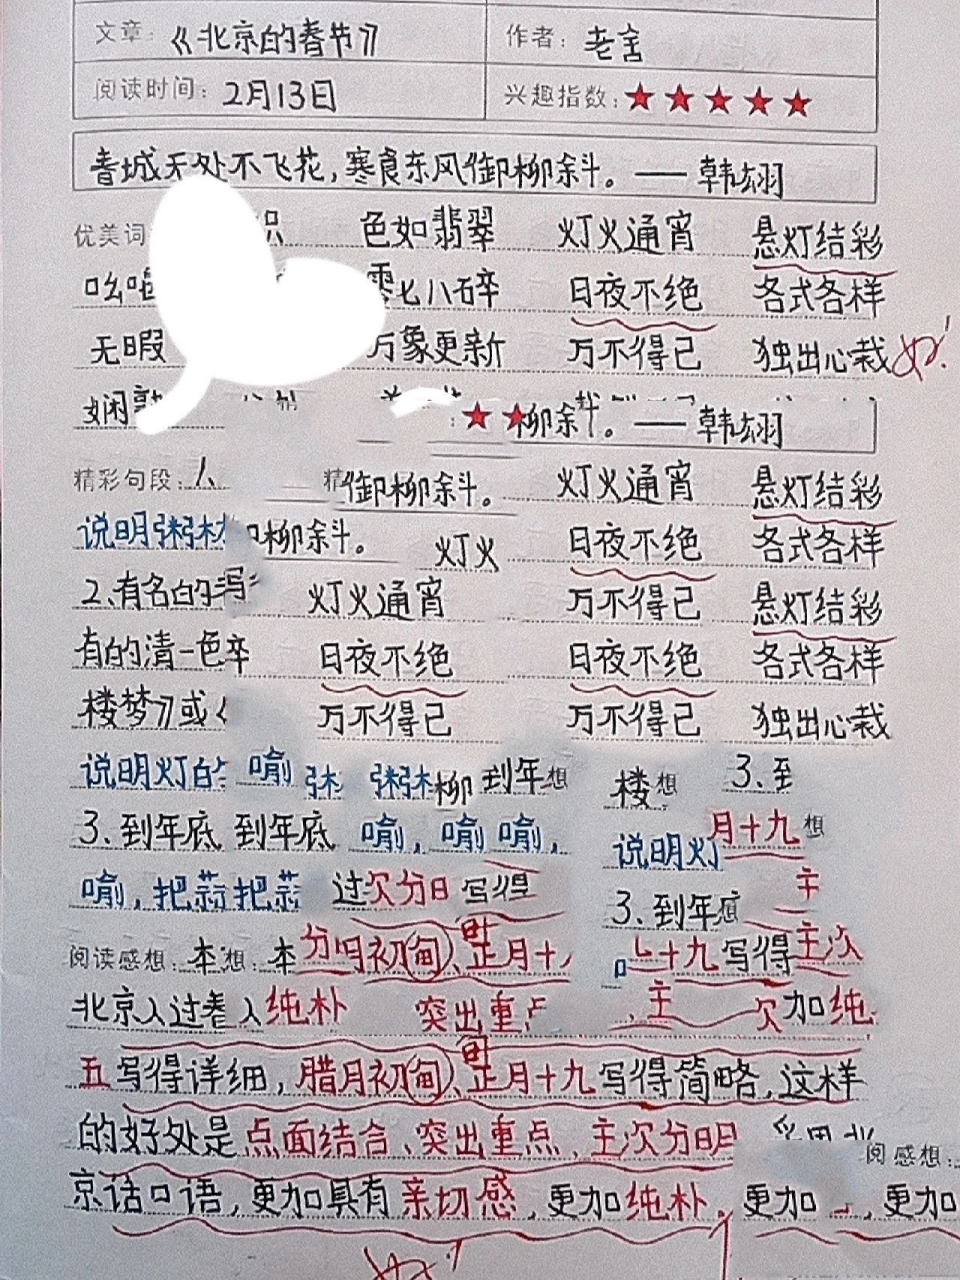 文章：《北京的春节》 作者：老舍
阅读时间：2月13日 兴趣指数：★★★★★
春城无处不飞花，寒食东风御柳斜。——韩翃
优美词 色如翡翠 灯火通宵 悬灯结彩
零七八碎 日夜不绝 各式各样
无暇 万象更新 万不得已 独出心裁 好！
娴熟 ★★ 柳斜。——韩翃
精彩句段：1、 精 御柳斜。 灯火通宵 悬灯结彩
说明粥 柳斜。 灯火 日夜不绝 各式各样
2、有名的 灯火通宵 万不得已 悬灯结彩
有的清一色 日夜不绝 日夜不绝 各式各样
楼梦》或《 万不得已 万不得已 独出心裁
说明灯的 喻 粥 柳 到年 想 楼 想 3、到
3、到年底 到年底 喻， 喻 喻， 说明灯 月十九 想
喻，把蒜 把蒜 过次分日写得 3、到年底 主
阅读感想：本 想：本 分明初旬、正月十 十九写得主次
北京人过春 入纯朴 突出重点 主 次加纯
五写得详细，腊月初旬、正月十九时写得简略，这样
的好处是点面结合、突出重点、主次分明 采用北 阅感想：
京话口语，更加具有亲切感，更加纯朴。更加 ，更加
好！